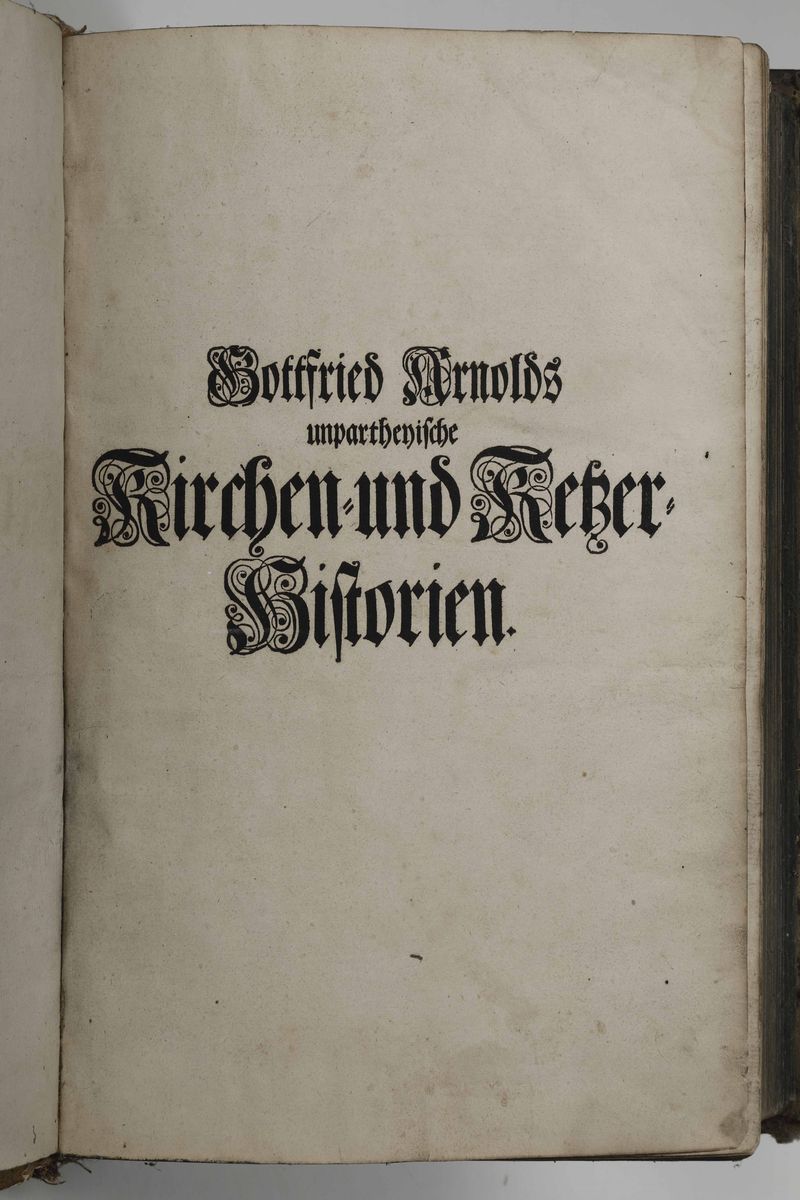 Gottfried Arnolds
unpartheyische
Kirchen-und Ketzer-
Historien.